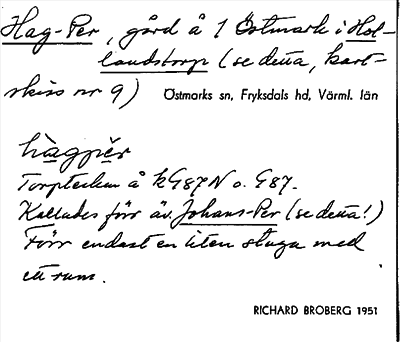 Hag-Per, gård å 1 Östmark i Hol-
landstorp (se detta, kart-
skiss nr 9) Östmarks sn, Fryksdals hd, Värml. län
hàgpĕ̀r
Torptecken å k G87 N o. G87.
Kallades förr äv. Johans-Per (se detta!)
Förr endast en liten stuga med
ett rum.
RICHARD BROBERG 1951